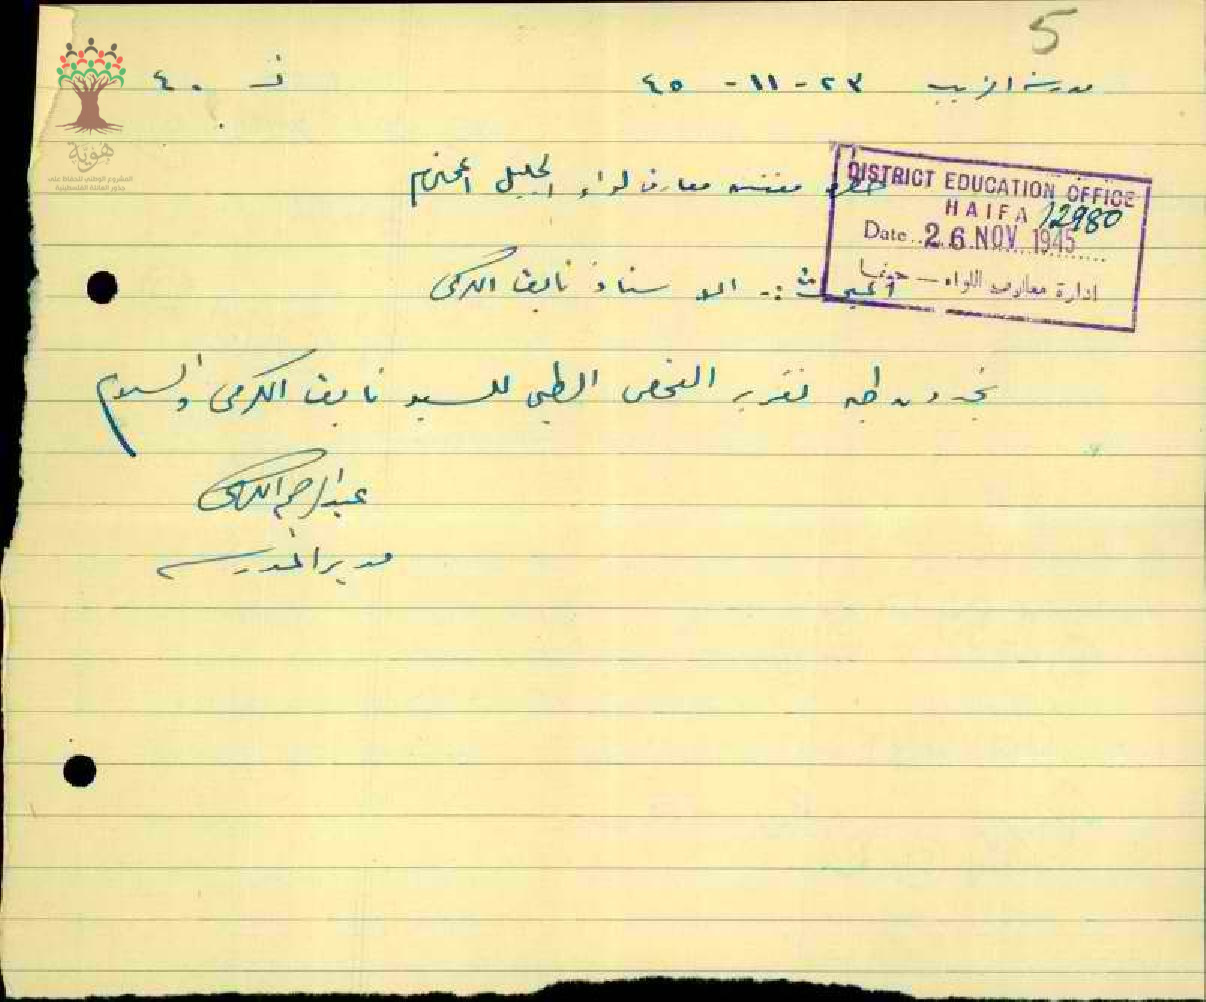 5
مدرسة الزيب ٢٣-١١-٤٥ ف ٤٠
هويّة
المشروع الوطني للحفاظ على
جذور العائلة الفلسطينية
حضرة مفتش معارف لواء الجليل المحترم
DISTRICT EDUCATION OFFICE
HAIFA 12980
Date 26 NOV 1945
ادارة معارف اللواء — حيفا
المبحث :- الاستاذ نايف الكرمي
تجدون طيه تقرير الفحص الطبي للسيد نايف الكرمي والسلام
عبد الرحيم الكرمي
مدير المدرسة